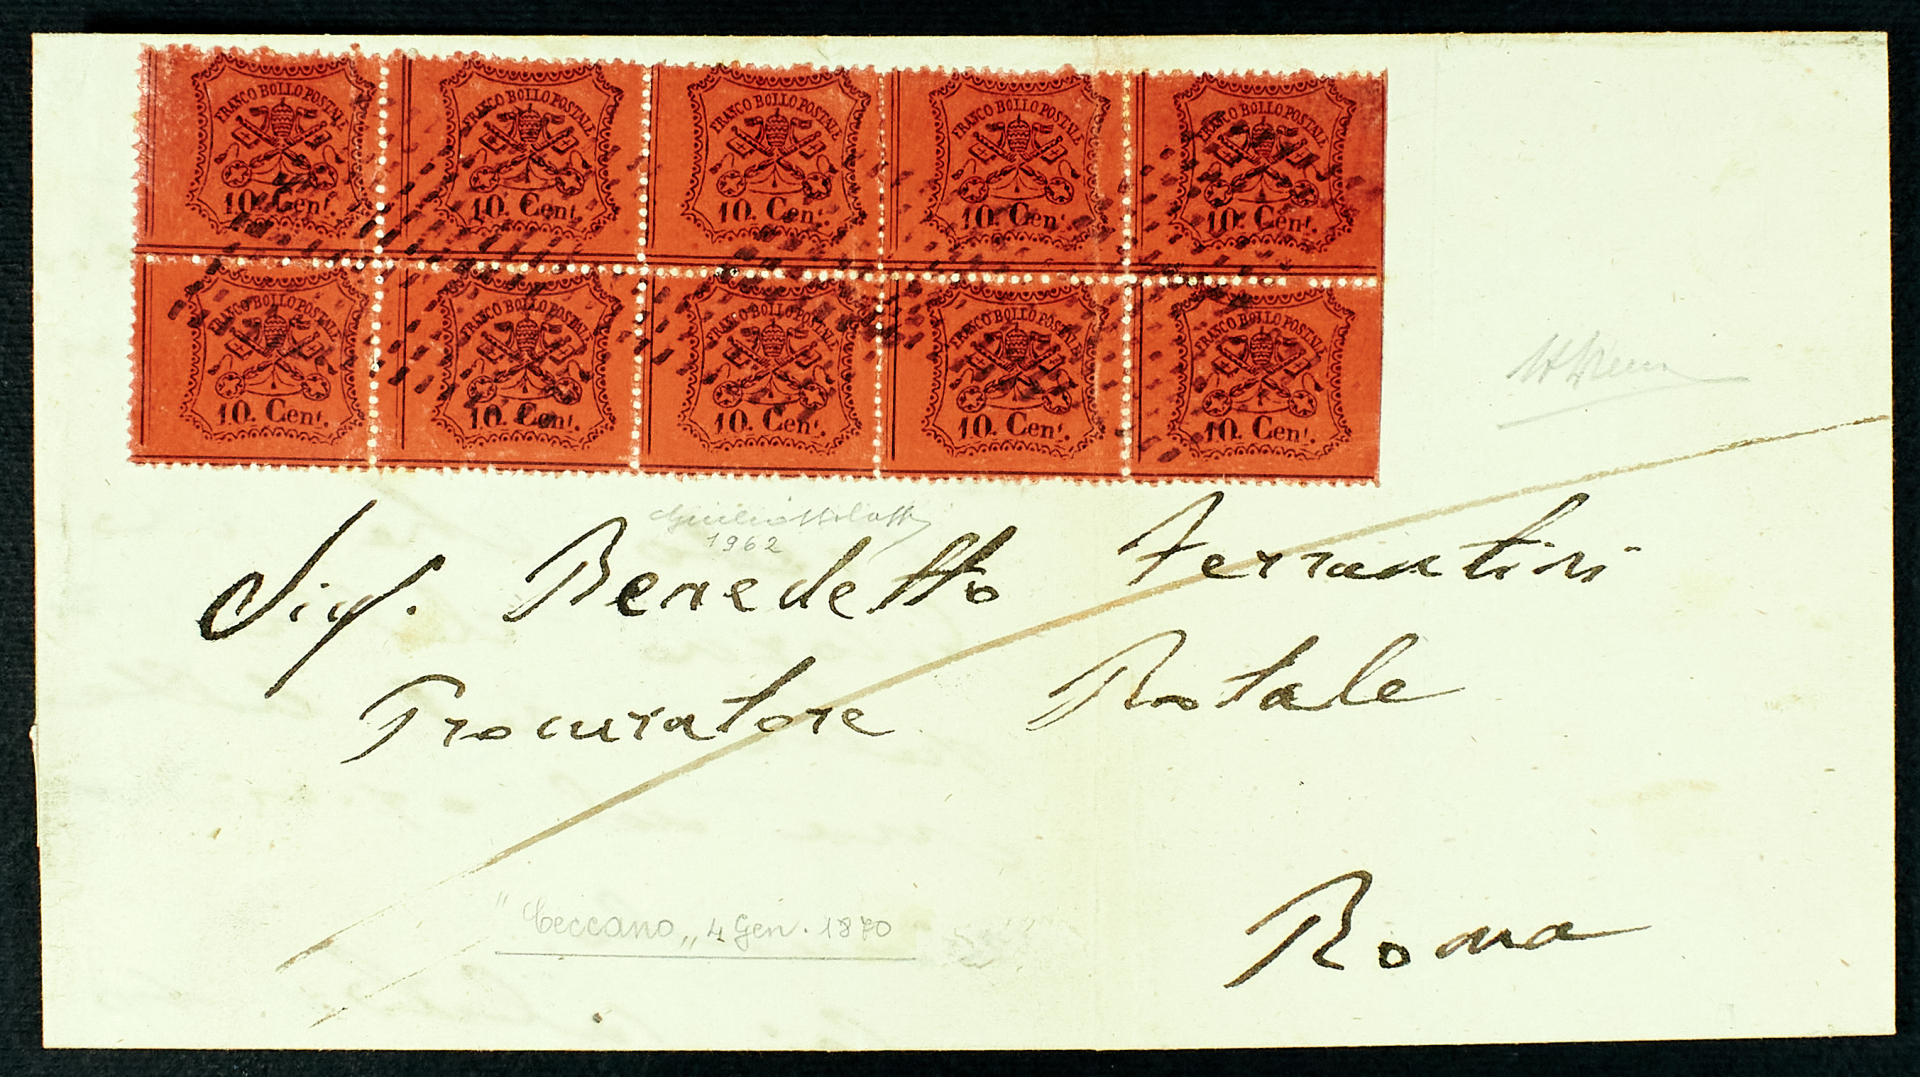 FRANCO BOLLO POSTALE FRANCO BOLLO POSTALE FRANCO BOLLO POSTALE FRANCO BOLLO POSTALE FRANCO BOLLO POSTALE
10. Cent. 10. Cent. 10. Cent. 10. Cent. 10. Cent.
FRANCO BOLLO POSTALE FRANCO BOLLO POSTALE FRANCO BOLLO POSTALE FRANCO BOLLO POSTALE FRANCO BOLLO POSTALE
10. Cent. 10. Cent. 10. Cent. 10. Cent. 10. Cent.
1962
Sig. Benedetto Ferrantini
Procuratore Rotale
"Ceccano„ 4 Gen. 1870
Roma